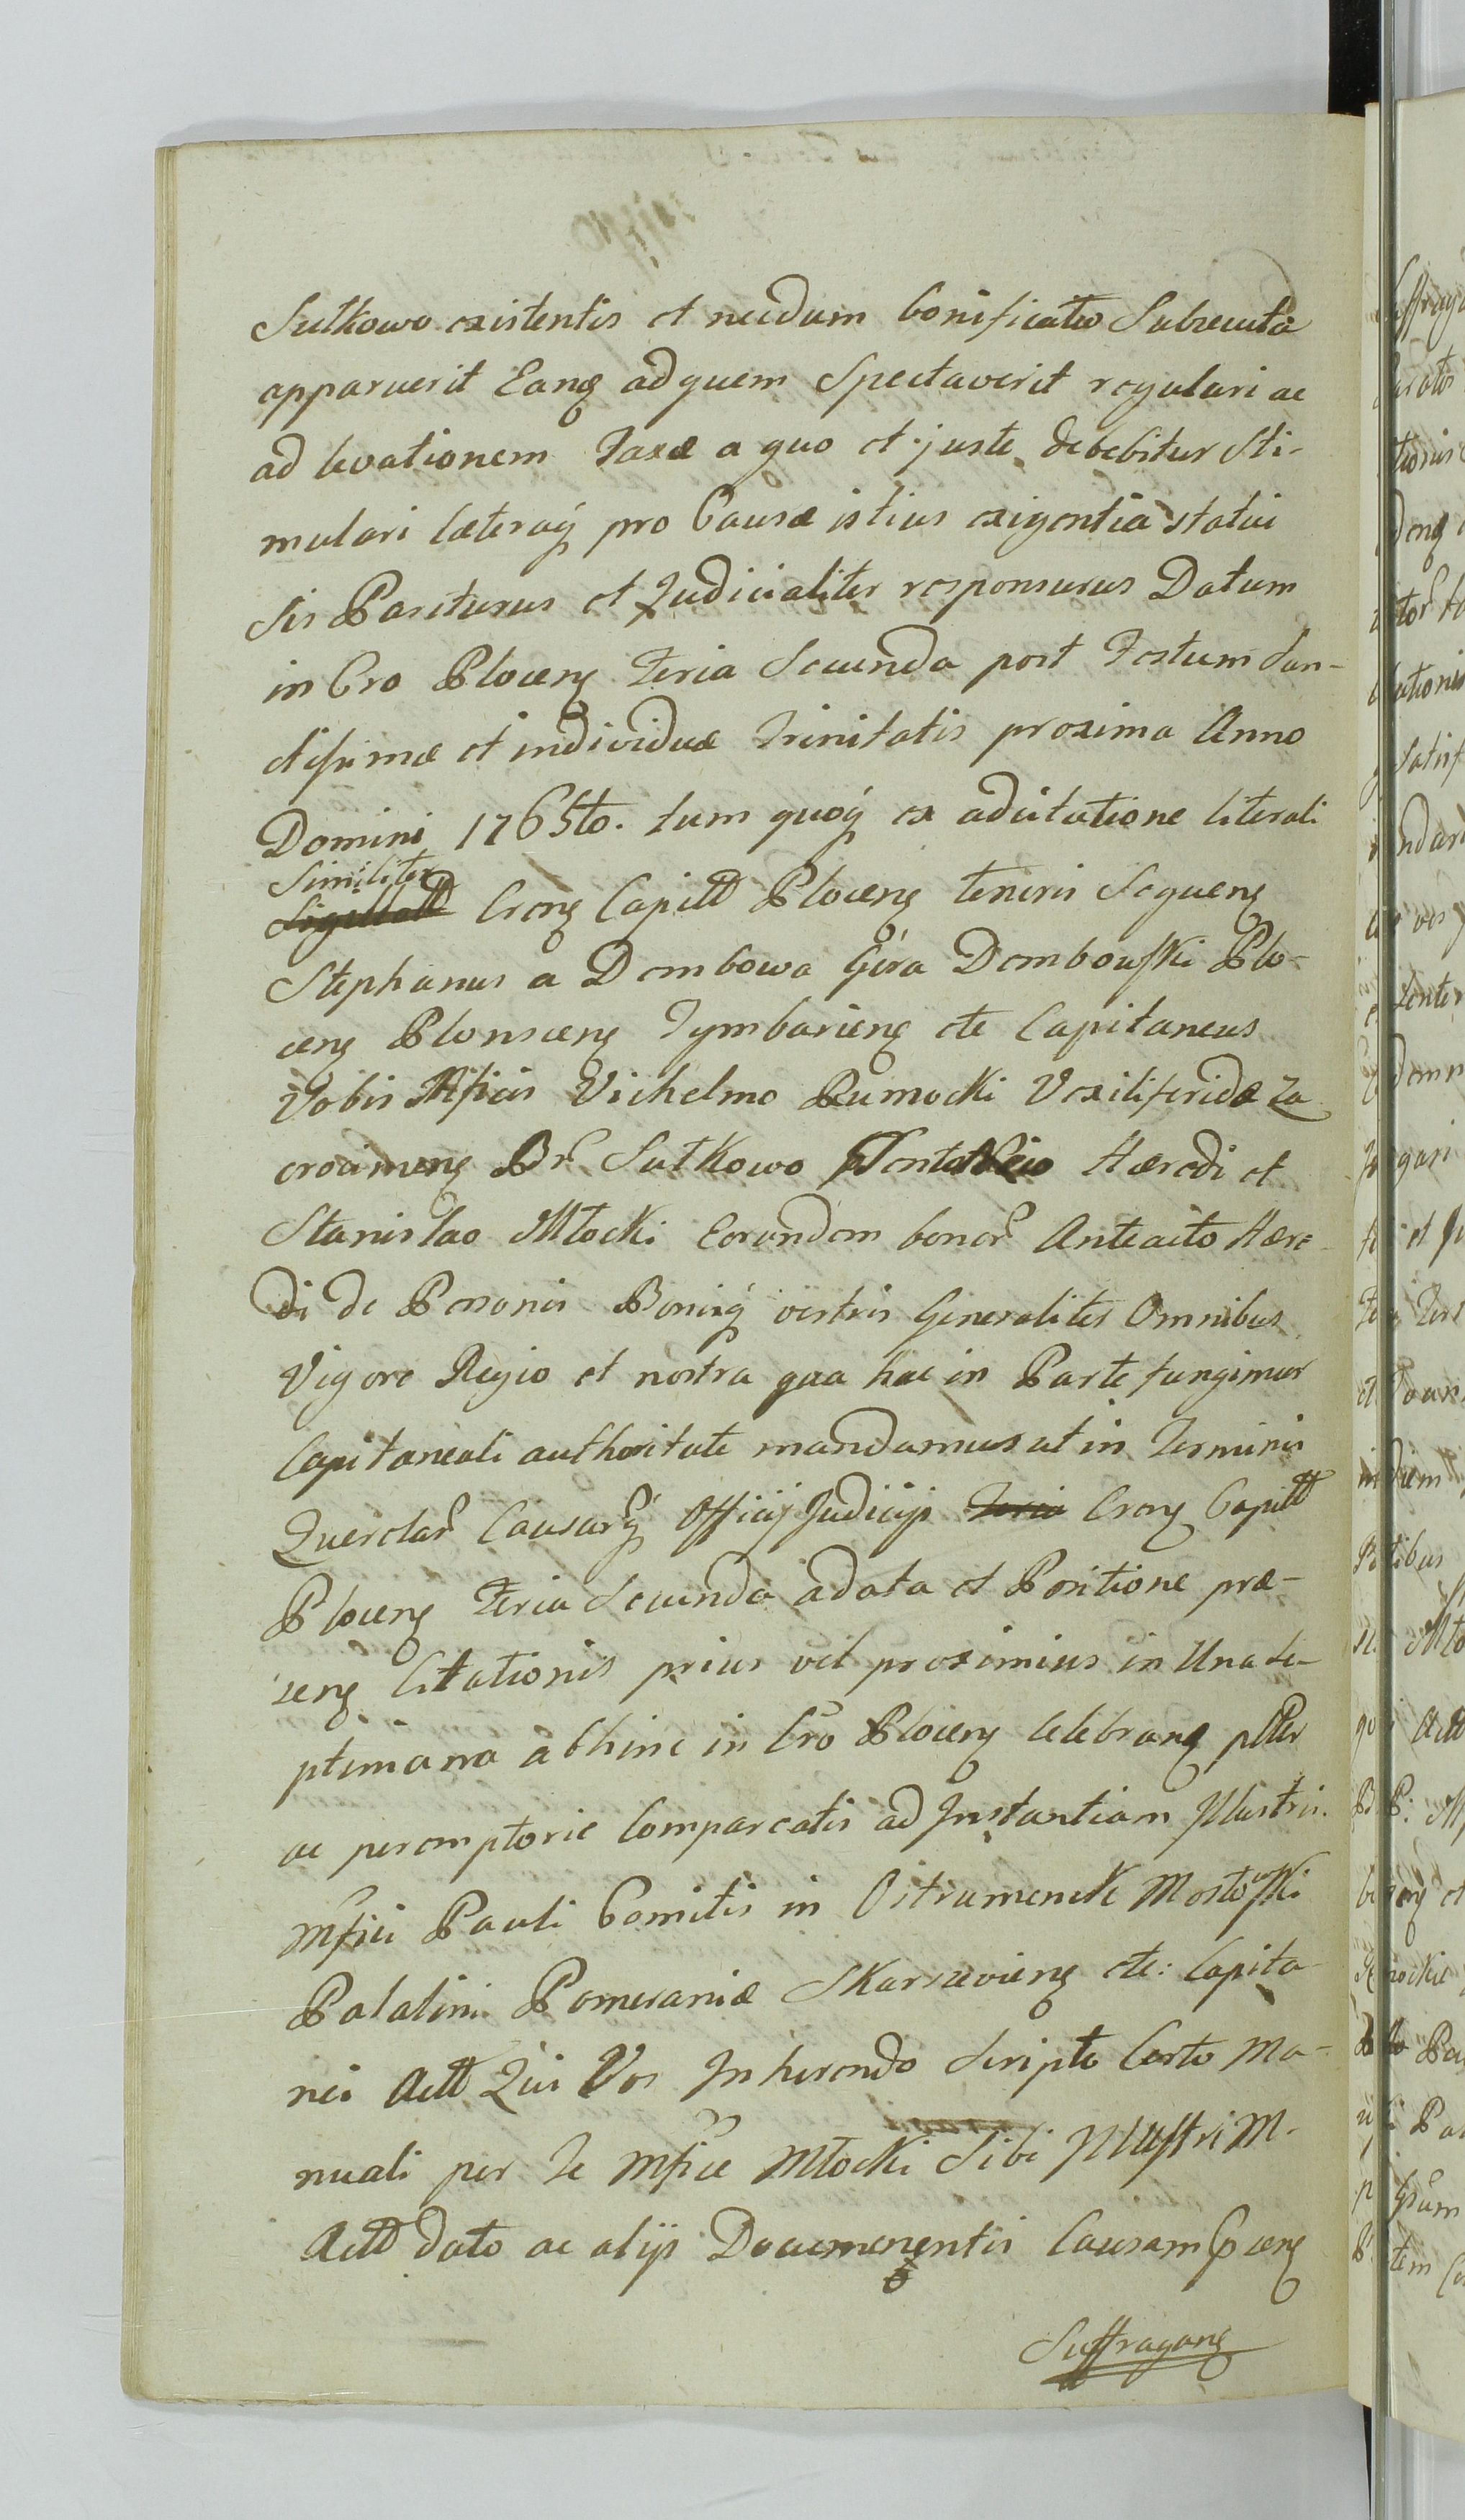 Sułkowo existentis et necdum bonificatio Subsecuta
apparuerit Eanq ad quem Spectaverit regulari ac
ad levationem Taxæ a quo et juste debebitur Sti-
mulari Cæteraq́ pro Causæ istius exigentia statui
Sis Pariturus et Judicialiter responsurus Datum
in Cro Plocenş Feria Secunda post Festum San-
ctissimæ et individuæ Trinitatis proxima Anno
Domini 1765to. tum quoq́ ex adcitatione literali
Similiter
Crenş Capitt Plocenş tenoris Sequenş
Stephanus a Dembowa Góra Dembowski Plo-
cenş Plonscenş Tymbarienş etc Capitaneus
Vobis Mficis Vichelmo Rumocki Vexiliferidæ Za
crocimenş Br̃ Sułkowo Hæredi et
Stanislao Młocki Eorundem bonor̃ Anteacto Hære-
di de Personis Bonisq́ vestris Generaliter Omnibus
Vigore Regio et nostra qua hac in Parte fungimur
Capitaneali authoritate mandamus ut in Terminis
Querelar̃ Causarq́ Officij Judicijs Feria Crenş Capitt
Plocenş Feria Secunda a data et Positione præ-
senş Citationis prius vel proximius in Una Se-
ptimana abhinc in Cro Plocenş Celebranş ptter
ac peremptorie Compareatis ad Instantiam Illustris
Mfici Pauli Comitis in Ostrumenck Mostowski
Palatini Pomeraniæ Skarszevienş etc: Capita-
nei Actt Qui Vos Inherendo Scripto Certo Ma-
nuali per Te Mfice Młocki Sibi Illustri M-
Actt dato ac alijs Documenentis Causam concenş
Suffraganş